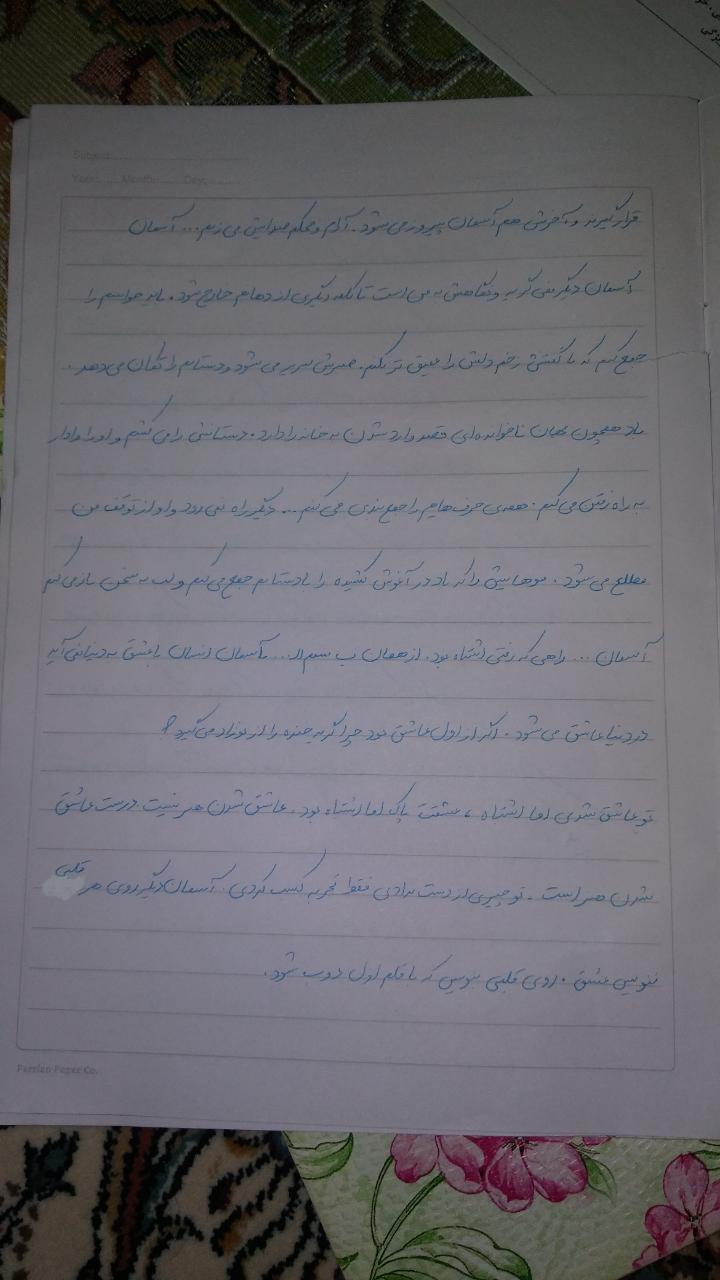 Subject:
Year: Month: Day:
قرار گیرند و آخرش هم آسمان پیروز می شود. آرام و محکم صدایش می زنم... آسمان
آسمان دیگر نمی گرید و نگاهش به من است تا کلمه دیگری از دهانم خارج شود. باید حواسم را
جمع کنم که با گفتنش زخم دلش را عمیق تر نکنم. صبرش لبریز می شود و دستانم را تکان می دهد.
باد همچون مهمان ناخوانده ای قصد وارد شدن به خانه را دارد. دستانش را می کشم و او را وادار
به راه رفتن می کنم. همه ی حرف هایم را جمع بندی می کنم... دیگر راه نمی رود و او از توقف من
مطلع می شود. موهایش را که باد در آغوش کشیده را با دستانم جمع می کنم و لب به سخن باز می کنم
آسمان ... راهی که رفتی اشتباه بود. از همان ب بسم الله... آسمان انسان با عشق به دنیا نمی آید
در دنیا عاشق می شود. اگر از اول عاشق بود چرا گریه خنده را از نوزاد می گیرد؟
تو عاشق شدی اما اشتباه ، عشقت پاک اما اشتباه بود. عاشق شدن هنر نیست درست عاشق
شدن هنر است. تو چیزی از دست ندادی فقط تجربه کسب کردی. آسمان دیگر روی هر قلبی
ننویس عشق. روی قلبی بنویس که با قلم اول ذوب شود.
Parsian Paper Co.